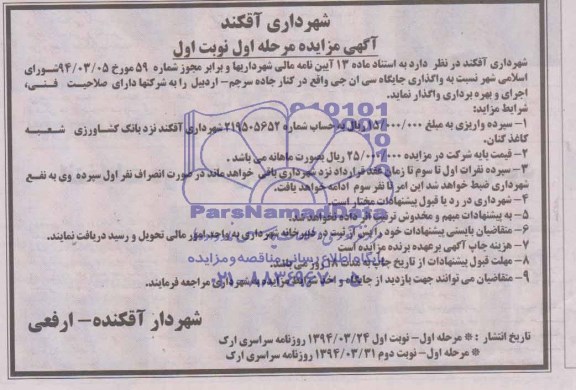 شهرداری آقکند
آگهی مزایده مرحله اول نوبت اول
شهرداری آقکند در نظر دارد به استناد ماده ۱۳ آیین نامه مالی شهرداریها و برابر مجوز شماره ۵۹ مورخ ۹۴/۰۳/۰۵ شورای
اسلامی شهر نسبت به واگذاری جایگاه سی ان جی واقع در کنار جاده سرچم - اردبیل را به شرکتها دارای صلاحیت فنی،
اجرای و بهره برداری واگذار نماید.
شرایط مزاید:
۱- سپرده واریزی به مبلغ ۱۵/۰۰۰/۰۰۰ ریال به حساب شماره ۲۱۹۵۰۵۶۵۲ شهرداری آقکند نزد بانک کشاورزی شعبه
کاغذ کنان.
۲- قیمت پایه شرکت در مزایده ۲۵/۰۰۰/۰۰۰ ریال بصورت ماهانه می باشد.
۳- سپرده نفرات اول تا سوم تا زمان عقد قرارداد نزد شهرداری باقی خواهد ماند در صورت انصراف نفر اول سپرده وی به نفع
شهرداری ضبط خواهد شد این امر تا نفر سوم ادامه خواهد یافت.
۴- شهرداری در رد یا قبول پیشنهادات مختار است.
۵- به پیشنهادات مبهم و مخدوش ترتیب اثر داده نخواهد شد.
۶- متقاضیان بایستی پیشنهادات خود را پس از ثبت در دبیرخانه شهرداری به واحد امور مالی تحویل و رسید دریافت نمایند.
۷- هزینه چاپ آگهی برعهده برنده مزایده است
۸- مهلت قبول پیشنهادات از تاریخ چاپ به مدت ۱۸ روز می باشد.
۹- متقاضیان می توانند جهت بازدید از جایگاه و اخذ شرایط مزایده به شهرداری مراجعه فرمایند.
شهردار آقکنده - ارفعی
تاریخ انتشار : * مرحله اول- نوبت اول ۱۳۹۴/۰۳/۲۴ روزنامه سراسری ارک
* مرحله اول- نوبت دوم ۱۳۹۴/۰۳/۳۱ روزنامه سراسری ارک
ParsNamadData
پایگاه اطلاع رسانی مناقصه و مزایده